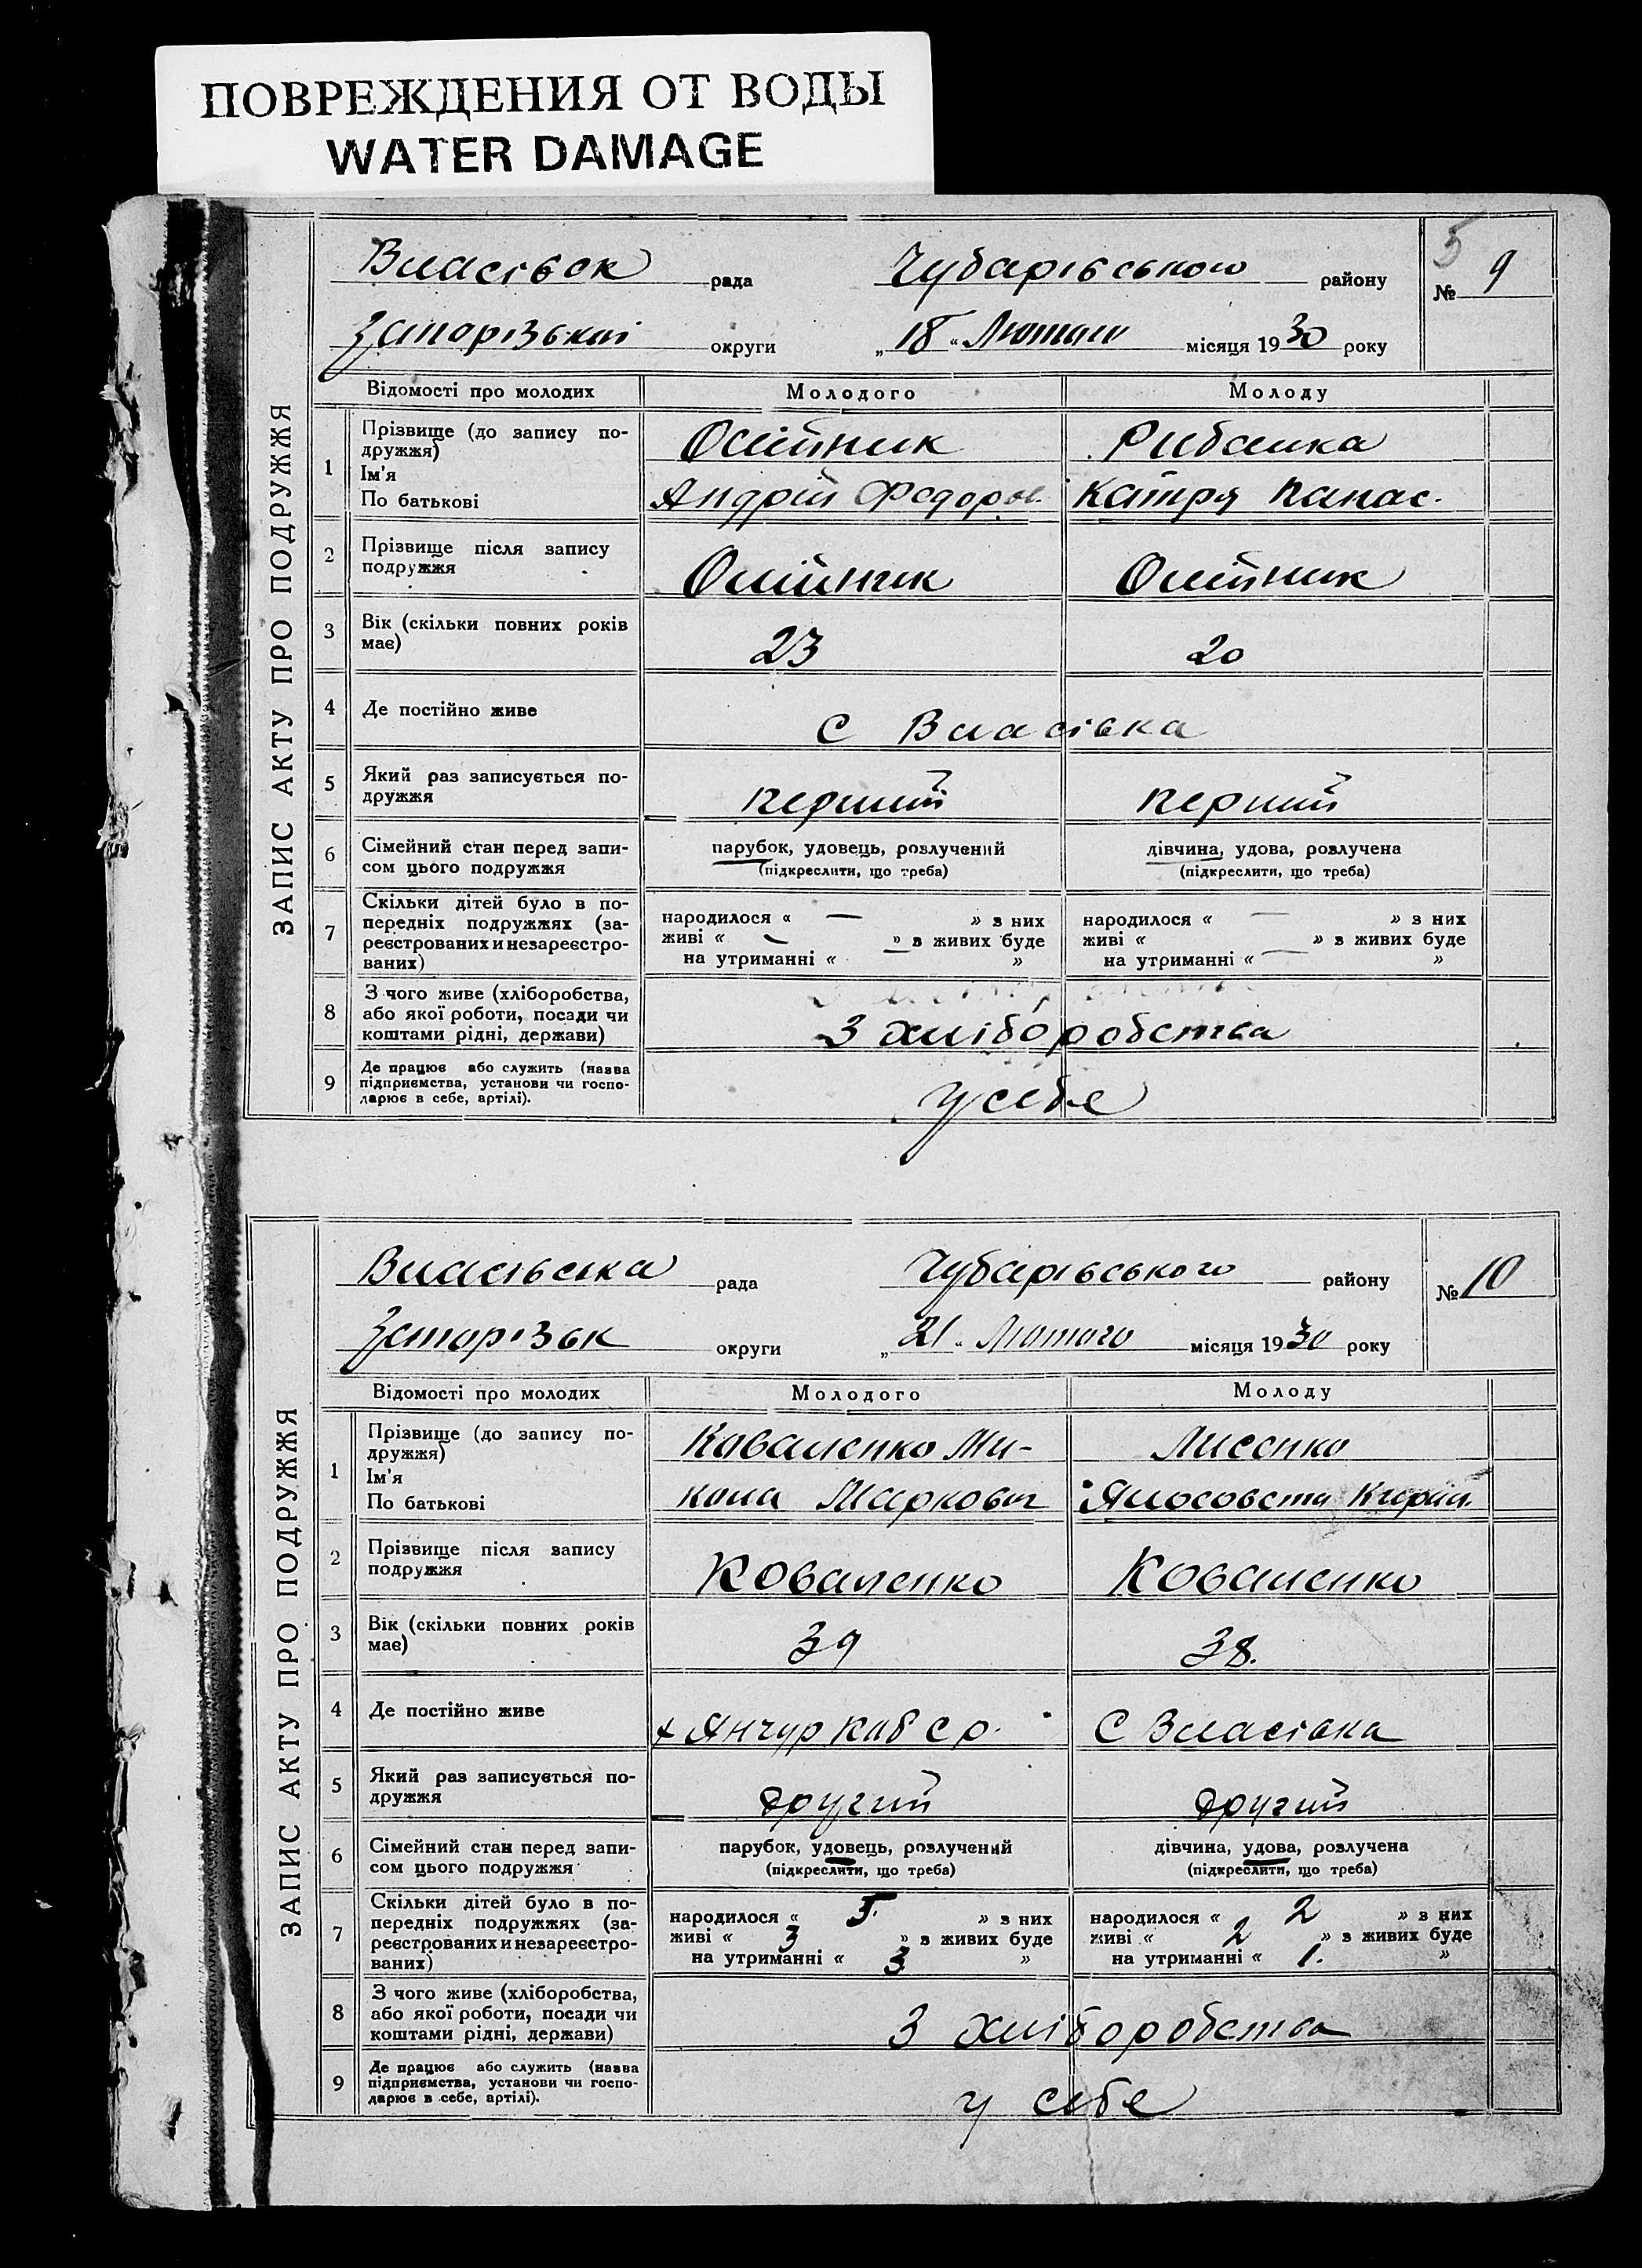 ПОВРЕЖДЕНИЯ ОТ ВОДЫ
WATER DAMAGE
ЗАПИС АКТУ ПРО ПОДРУЖЖЯ
5
Власівськ рада Чубарівського району № 9
Запорізької округи „18“ Лютого місяця 1930 року
Відомості про молодих Молодого Молоду
1 Прізвище (до запису по-
дружжя) Олійник Рибалка
Ім'я
По батькові Андрій Федоров. Катря Панас.
2 Прізвище після запису
подружжя Олійник Олійник
3 Вік (скільки повних років
має) 23 20
4 Де постійно живе С Власівка
5 Який раз записується по-
дружжя перший перший
6 Сімейний стан перед запи-
сом цього подружжя
парубок, удовець, розлучений дівчина, удова, розлучена
(підкреслити, що треба) (підкреслити, що треба)
7 Скільки дітей було в по-
передніх подружжях (за-
реєстрованих и незареєстро-
ваних)
народилося « — » з них народилося « — » з них
живі « — » з живих буде живі « » з живих буде
на утриманні « » на утриманні « — »
8 З чого живе (хліборобства,
або якої роботи, посади чи
коштами рідні, держави) З хліборобства
9 Де працює або служить (назва
підприємства, установи чи госпо-
дарює в себе, артілі). у себе
ЗАПИС АКТУ ПРО ПОДРУЖЖЯ
Власівська рада Чубарівського району № 10
Запорізьк округи „21“ Лютого місяця 1930 року
Відомості про молодих Молодого Молоду
1 Прізвище (до запису по-
дружжя) Коваленко Ми- Лисенко
Ім'я
По батькові кола Маркович
2 Прізвище після запису
подружжя Коваленко Коваленко
3 Вік (скільки повних років
має) 39 38.
4 Де постійно живе х Янчур С Власівка
5 Який раз записується по-
дружжя другий другий
6 Сімейний стан перед запи-
сом цього подружжя
парубок, удовець, розлучений дівчина, удова, розлучена
(підкреслити, що треба) (підкреслити, що треба)
7 Скільки дітей було в по-
передніх подружжях (за-
реєстрованих и незареєстро-
ваних)
народилося « 5. » з них народилося « 2 » з них
живі « 3 » з живих буде живі « 2 » з живих буде
на утриманні « 3 » на утриманні « 1. »
8 З чого живе (хліборобства,
або якої роботи, посади чи
коштами рідні, держави) З хліборобства
9 Де працює або служить (назва
підприємства, установи чи госпо-
дарює в себе, артілі). у себе